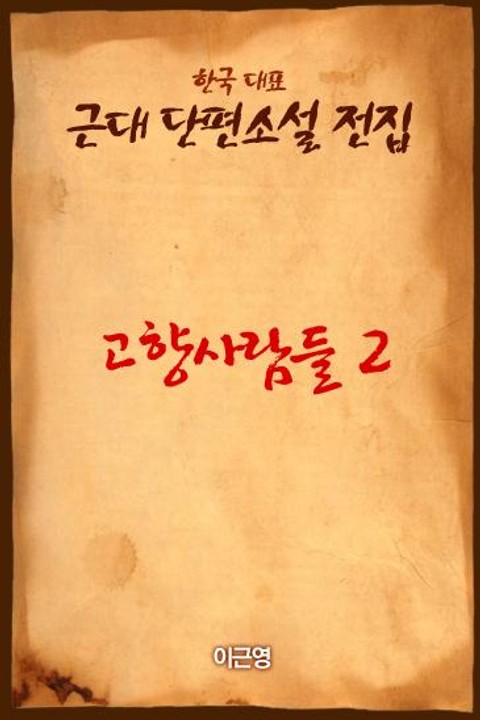 한국 대표
근대 단편소설 전집
고향사람들 2
이근영